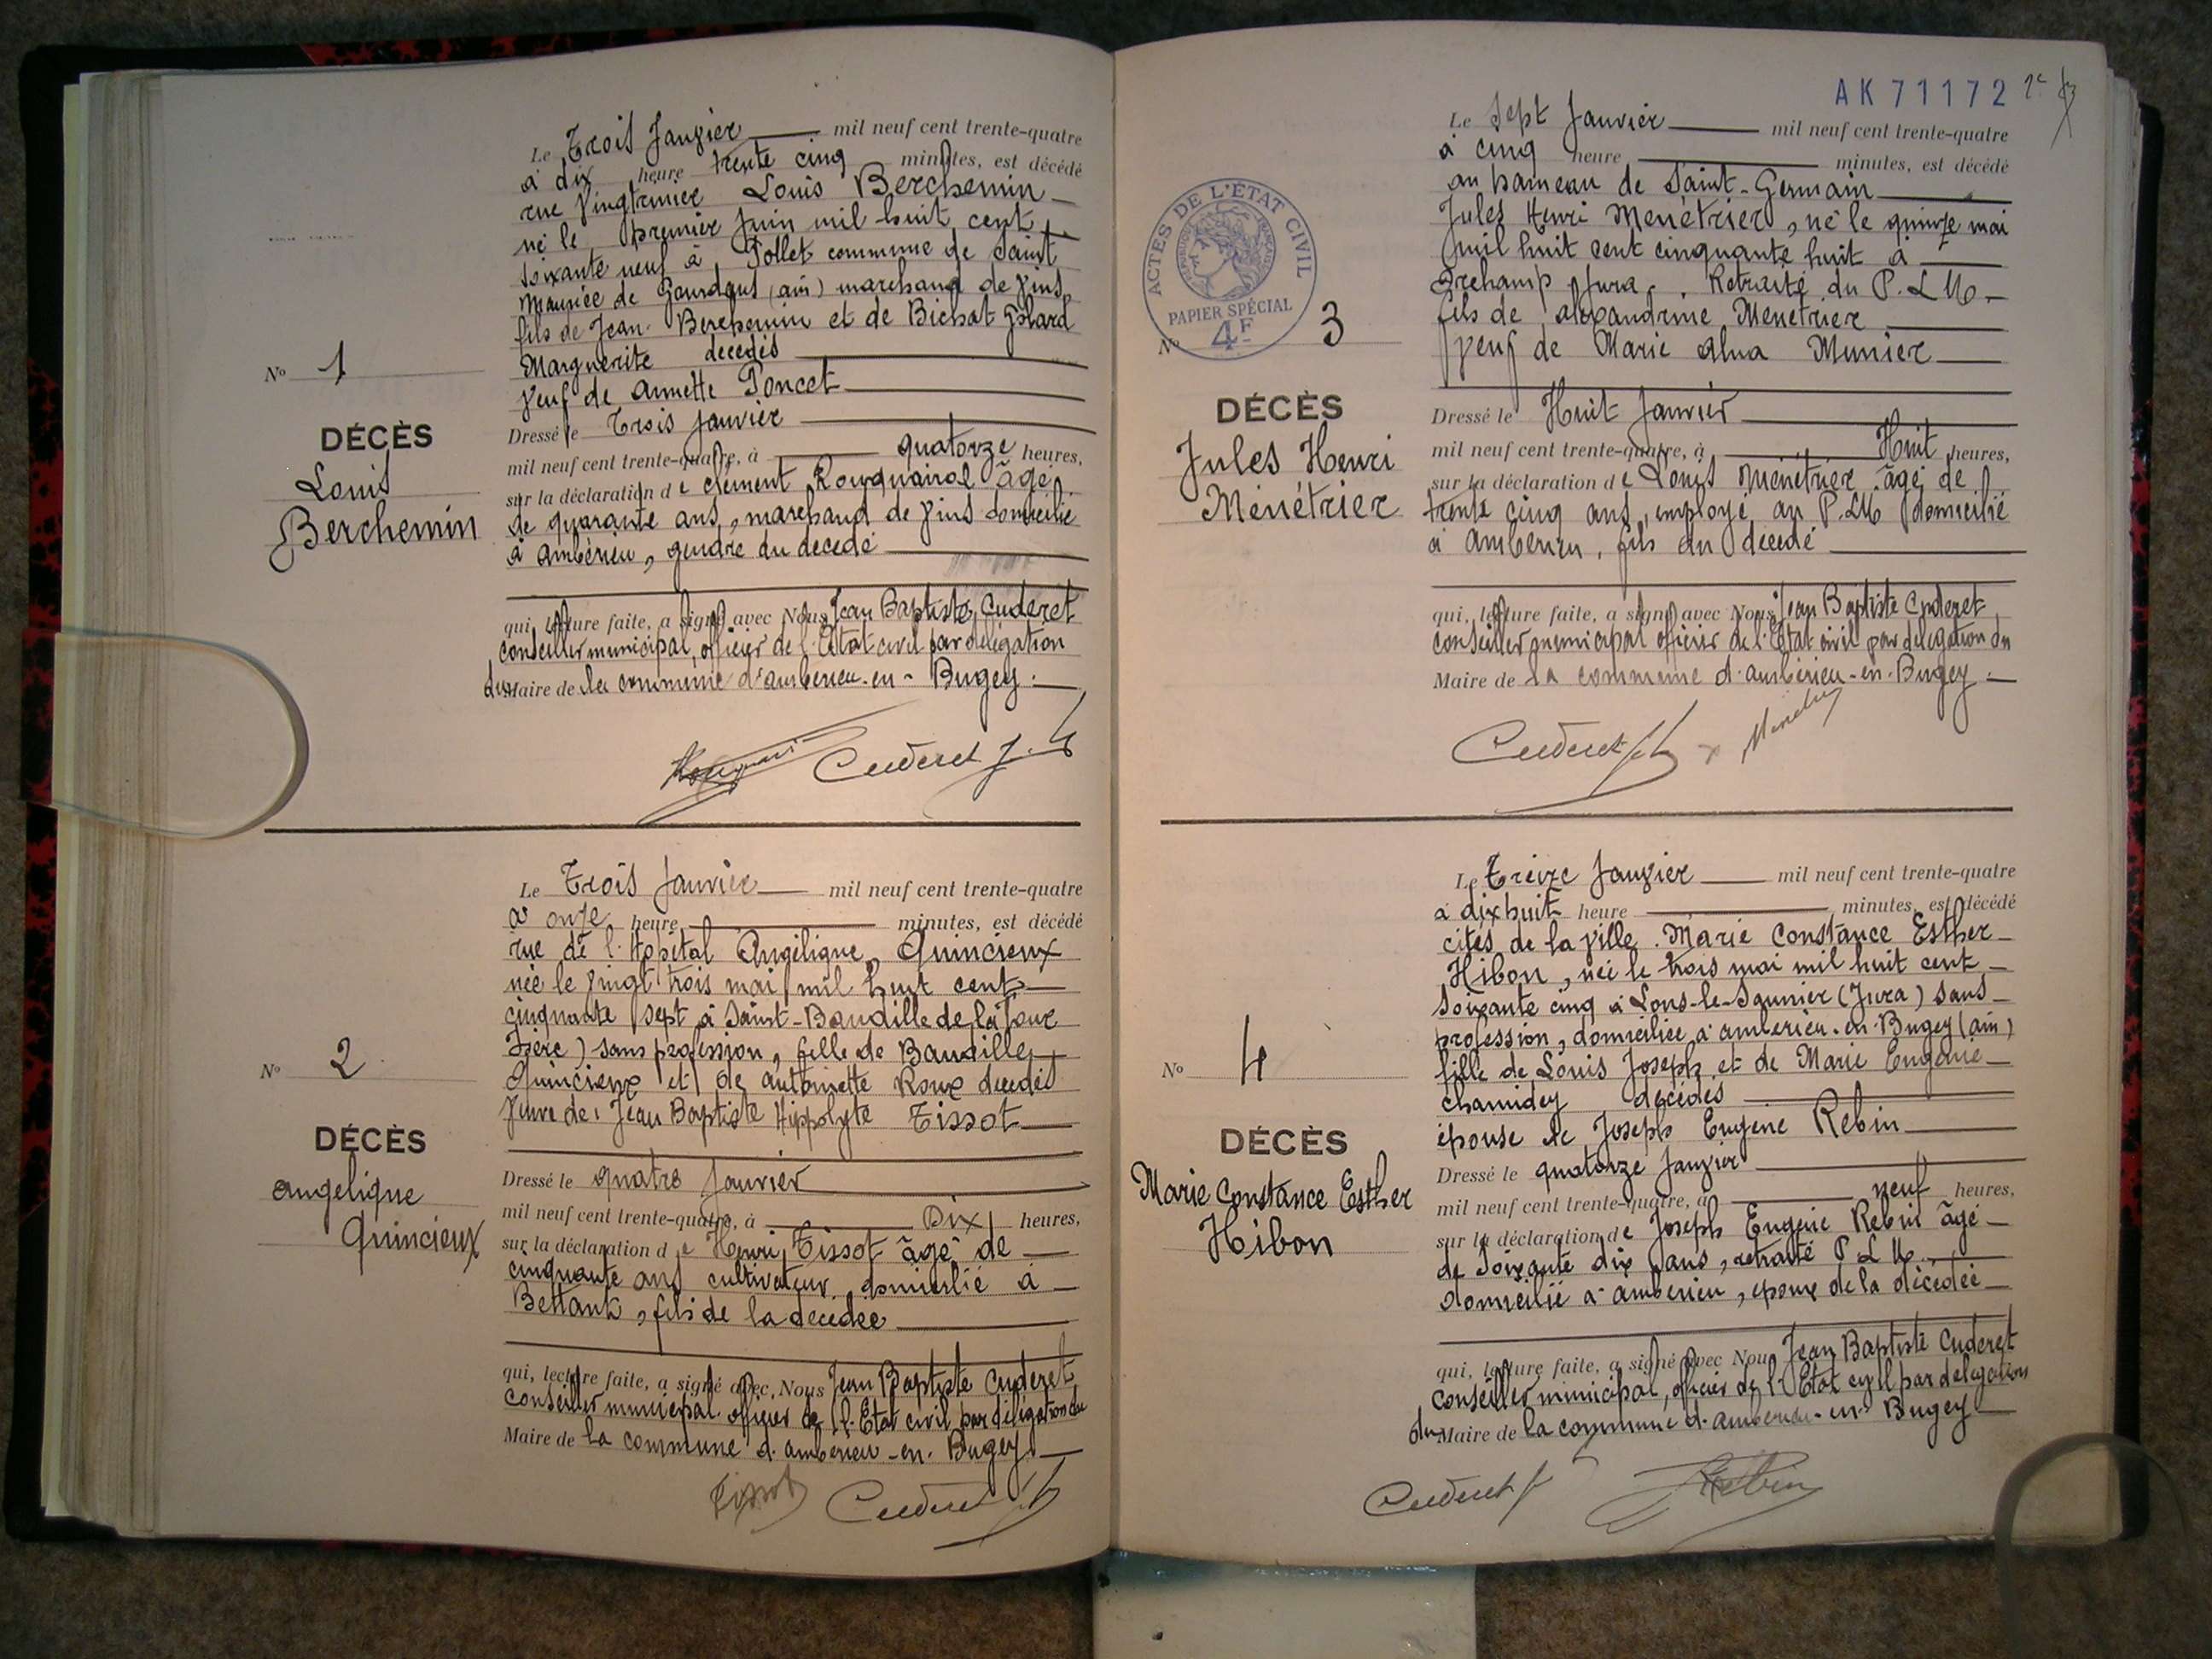 Le Trois Janvier mil neuf cent trente-quatre
à dix heure trente cinq minutes, est décédé
rue Vingtrinier Louis Berchemin
né le premier Juin mil huit cent
soixante neuf à Pollet commune de Saint
Maurice de Gourdans (ain) marchand de vins
fils de Jean Berchemin et de Bichat Golard
Marguerite décédés
veuf de annette Poncet
Dressé le Trois janvier
mil neuf cent trente-quatre, à quatorze heures,
sur la déclaration de clément Rouquairol âgé
de quarante ans, marchand de vins domicilié
à ambérieu, gendre du décédé
qui, lecture faite, a signé avec Nous Jean Baptiste Cuderet
conseiller municipal, officier de l'Etat civil par délégation
du Maire de la commune d'ambérieu-en-Bugey.
Cuderet J.B
No 1
DÉCÈS
Louis
Berchemin
Le Trois Janvier mil neuf cent trente-quatre
à onze heure minutes, est décédé
rue de l'Hopital Angélique Quincieux
née le vingt trois mai mil huit cent
cinquante sept à Saint-Baudille de la Tour
Isère) sans profession, fille de Baudille
Quincieux et de antoinette Roux décédés
Veuve de Jean Baptiste Hippolyte Tissot
Dressé le quatre Janvier
mil neuf cent trente-quatre, à Dix heures,
sur la déclaration de Henri Tissot âgé de
cinquante ans cultivateur domicilié à
Bettant, fils de la décédée
qui, lecture faite, a signé avec Nous Jean Baptiste Cuderet
conseiller municipal officier de l'Etat civil par délégation du
Maire de la commune d'ambérieu-en-Bugey
Tissot Cuderet J.B
No 2
DÉCÈS
angelique
Quincieux
AK71172
Le Sept Janvier mil neuf cent trente-quatre
à cinq heure minutes, est décédé
au hameau de Saint-Germain
Jules Henri Menétrier, né le quinze mai
mil huit cent cinquante huit à
Orchamp Jura. Retraité du P.L.M
fils de alexandrine Menetrier
veuf de Marie Munier
Dressé le Huit Janvier
mil neuf cent trente-quatre, à Huit heures,
sur la déclaration de Louis Menétrier âgé de
trente cinq ans, employé au P.LM domicilié
à ambérieu, fils du décédé
qui, lecture faite, a signé avec Nous Jean Baptiste Cuderet
conseiller municipal officier de l'Etat civil par délégation du
Maire de la commune d'ambérieu-en-Bugey.
Cuderet J.B
ACTES DE L'ÉTAT CIVIL
RÉPUBLIQUE FRANÇAISE
PAPIER SPÉCIAL
4F
No 3
DÉCÈS
Jules Henri
Ménétrier
Le Treize Janvier mil neuf cent trente-quatre
à dixhuit heure minutes, est décédé
cités de la ville. Marie Constance Esther
Hibon, née le trois mai mil huit cent
soixante cinq à Lons-le-Saunier (Jura) sans
profession, domiciliée à ambérieu-en-Bugey (ain)
fille de Louis Joseph et de Marie Eugénie
chamidey décédés
épouse de Joseph Eugène Rebin
Dressé le quatorze Janvier
mil neuf cent trente-quatre, à neuf heures,
sur la déclaration de Joseph Eugène Rebin âgé
de soixante dix ans, retraité P L M
domicilié à ambérieu, époux de la décédée
qui, lecture faite, a signé avec Nous Jean Baptiste Cuderet
conseiller municipal, officier de l'Etat civil par délégation
du Maire de la commune d'ambérieu-en-Bugey
Cuderet J Rebin
No 4
DÉCÈS
Marie Constance Esther
Hibon